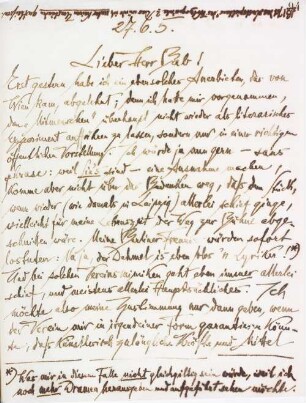 27.6.5.
Lieber Herr Bab!
Erst gestern habe ich ein ebensolches Anerbieten, der von
Wien kam, abgelehnt; denn ich hatte mir vorgenommen,
den „Mitmenschen“ überhaupt nicht wieder als litterarisches
Experiment aufführen zu lassen, sondern nur in einer richtigen
öffentlichen Vorstellung. Ich würde ja nun gern — sans
phrase: weil Sie es sind — eine Ausnahme machen,
komme aber nicht über die Bedenken weg, daß dem Stück,
wenn wieder (wie damals in Leipzig) allerlei schief ginge,
vielleicht für meine Lebenszeit der Weg zur Bühne abge-
schnitten wäre. Meine Berliner Freunde würden sofort
lostuten: Na ja, der Dehmel is eben blos 'n Lyriker!
Und bei solchen Vereinsmimiken geht eben immer allerlei
schief, und meistens allerlei Hauptsächliches. Ich
möchte also meine Zustimmung nur dann geben, wenn
der Verein mir in irgendeiner Form garantieren könn-
te, daß künstlerisch zulängliche Kräfte und Mittel
*) Was mir in diesem Falle nicht gleichgültig sein würde, weil ich
noch mehr Dramen herausgeben und aufgeführt sehen möchte.